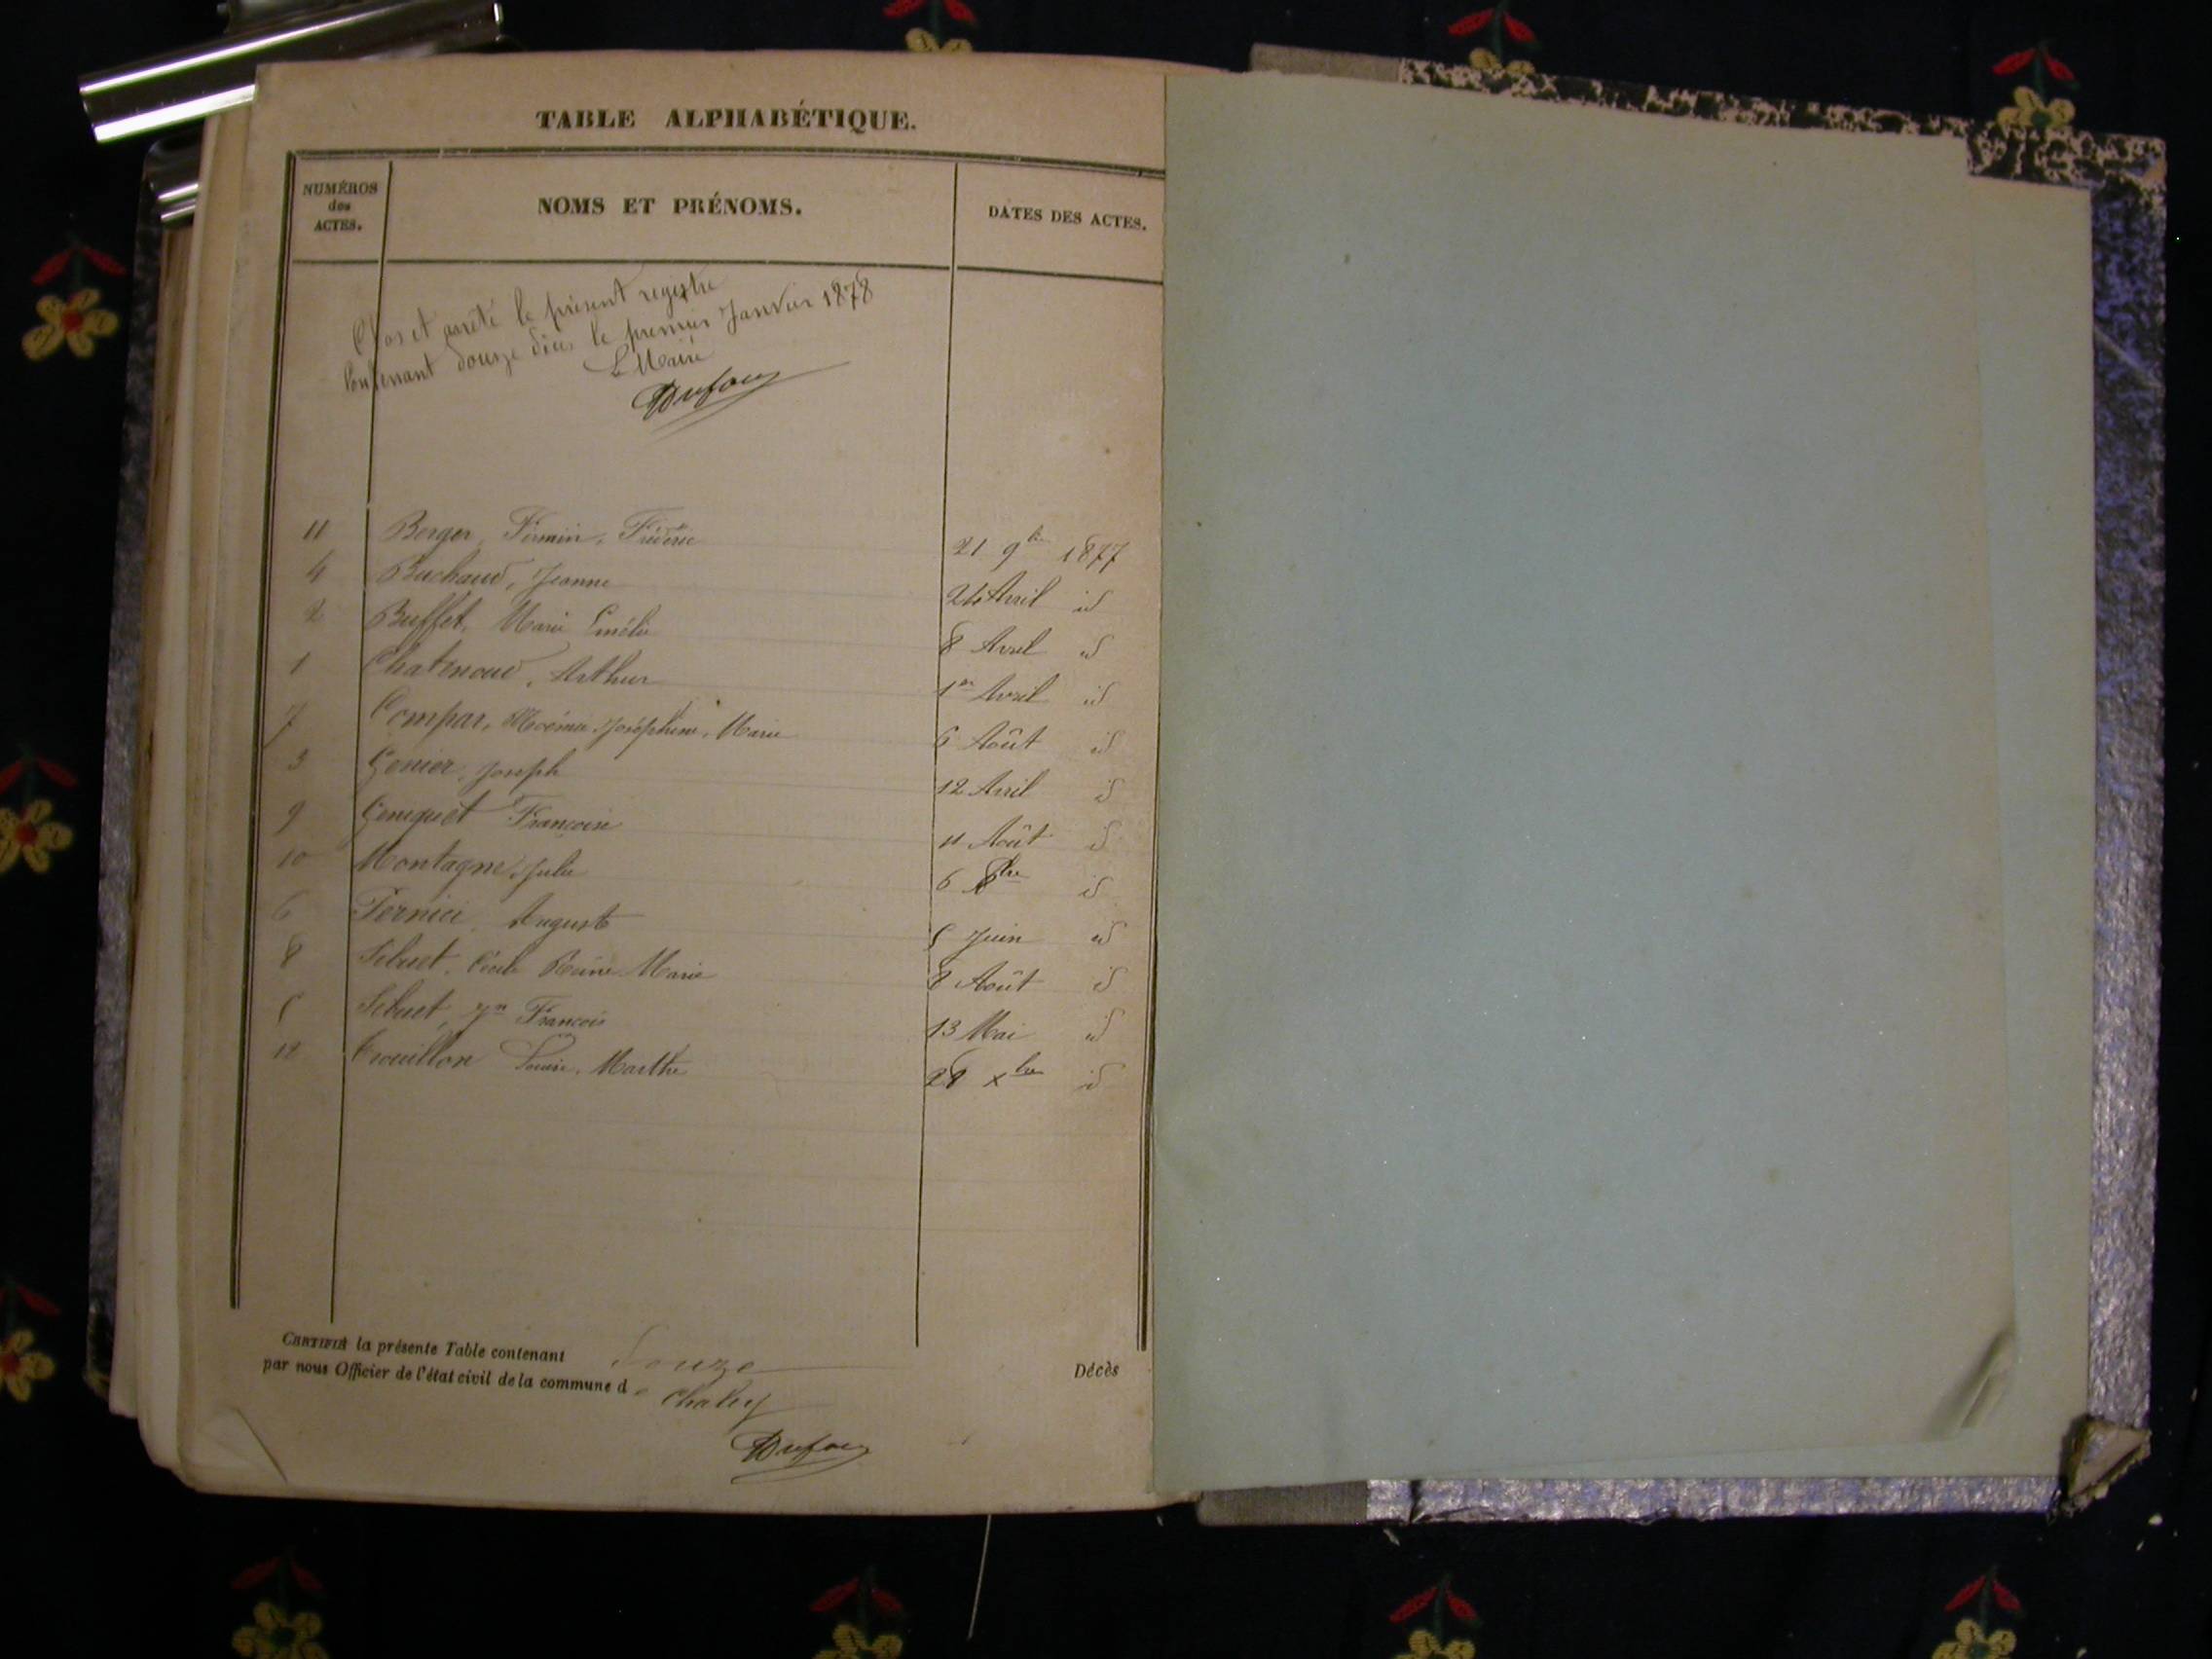 TABLE ALPHABÉTIQUE.
NUMÉROS
des
ACTES.
NOMS ET PRÉNOMS.
DATES DES ACTES.
Clos et arrêté le présent registre
Contenant douze le premier Janvier 1878
Le Maire
Dufour
11 Berger, Firmin, Frédéric 21 9bre 1877
4 Buchaud, Jeanne 24 Avril id
2 Buffet, Marie Emélie 8 Avril id
1 Chatenoud, Arthur 1er Avril id
7 Compar, Noémie, Joséphine, Marie 6 Août id
3 Genier, Joseph 12 Avril id
9 Genquet Françoise 11 Août id
10 Montagne, Julie 6 8bre id
6 Pernici, Auguste 5 Juin id
8 Sibuet, Cécile Reine Marie 8 Août id
5 Sibuet, Jn François 13 Mai id
12 Trouillon Louise, Marthe 28 xbre id
CERTIFIÉ la présente Table contenant Douze Décès
par nous Officier de l'état civil de la commune de Chaley
Dufour